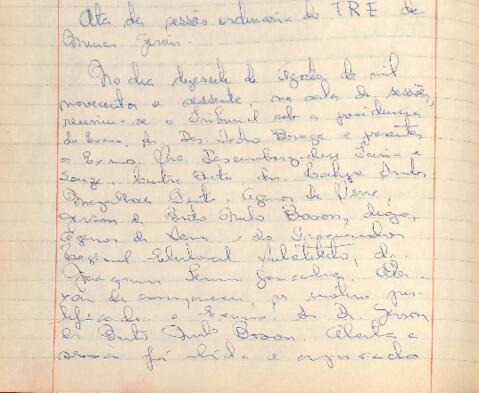 Ata da sessão ordinaria do TRE de
Minas Gerais.
No dia dezessete de Agosto de mil
novecentos e sessenta, na sala de sessões,
reuniu-se o Tribunal sob a presidencia
do Exmo. Sr. Des. Pedro Braga e presentes
os Exmos. Srs. Desembargador Faria e
Souza,
Magalhães Pinto,
Gerson de Brito Mello Boson, digo,
e do Procurador
Regional Eleitoral Substituto, dr.
Joaquim Gonçalves. Dei-
xou de comparecer, por motivo jus-
tificado, o Exmo. Sr. Dr. Gerson
de Brito Mello Boson. Aberta a
sessão foi lida e aprovada